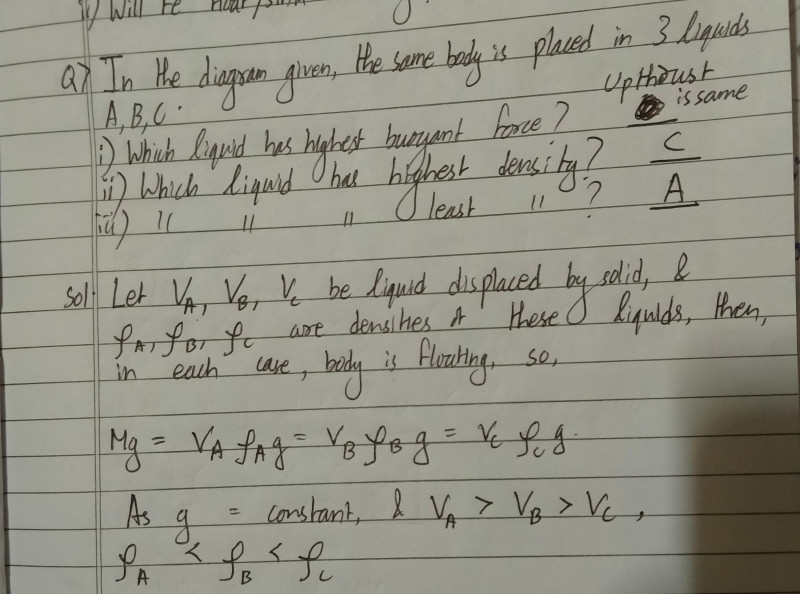 ii) Will
Q) In the diagram given, the same body is placed in 3 liquids
A, B, C.
i) Which liquid has highest buoyant force? Upthrust is same
ii) Which liquid has highest density? C
iii) " " " least " ? A
Sol. Let VA, VB, VC be liquid displaced by solid, &
ρA, ρB, ρC are densities of these liquids, then,
in each case, body is floating, so,
Mg = VA ρA g = VB ρB g = VC ρC g.
As g = constant, & VA > VB > VC ,
ρA < ρB < ρC